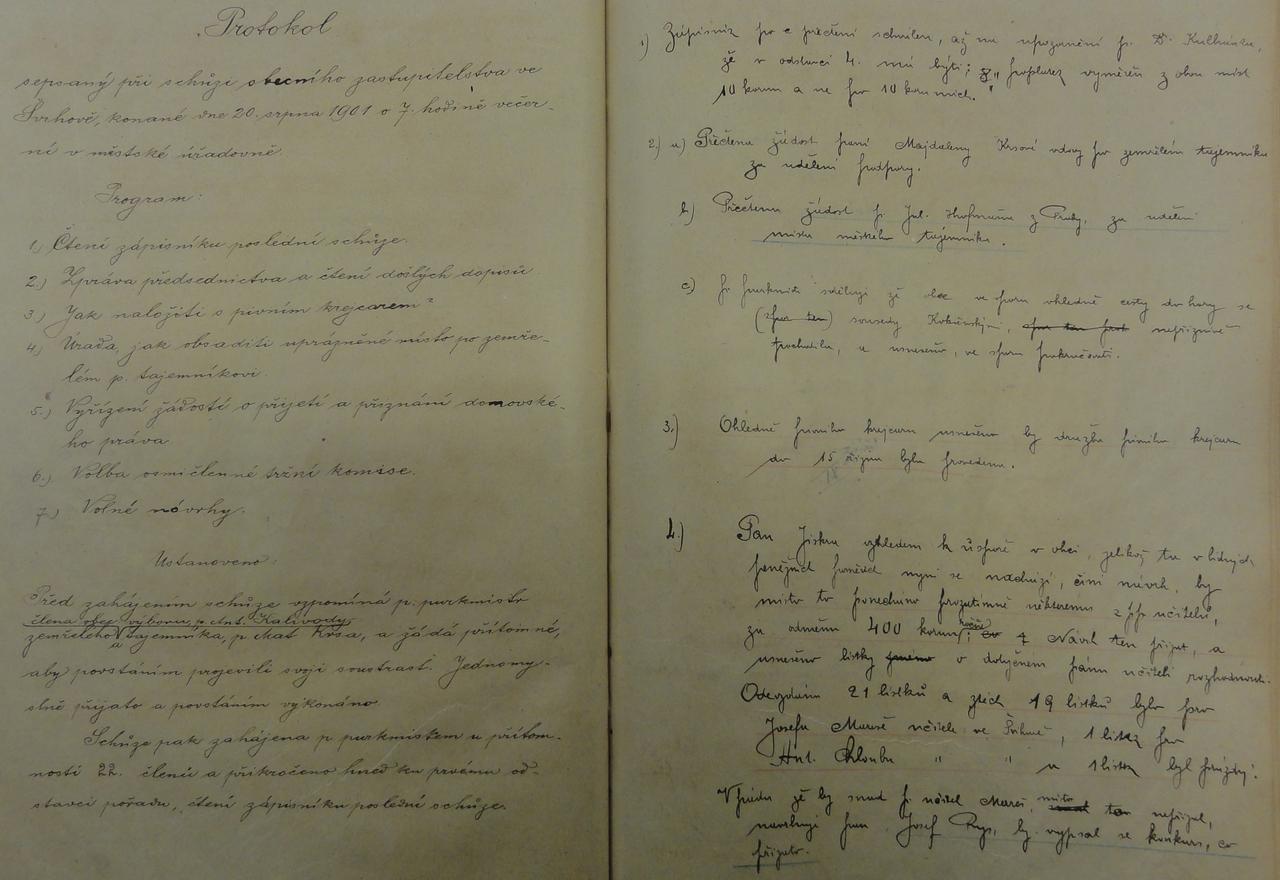 Protokol
sepsaný při schůzi obecního zastupitelstva ve
Švihově, konané dne 20. srpna 1901 o 7. hodině večer-
ní v městské úřadovně.
Program:
1.) Čtení zápisníku poslední schůze.
2.) Zpráva předsednictva a čtení došlých dopisů
3.) Jak naložiti s pivním krejcarem?
4.) Úrada, jak obsaditi uprázněné místo po zemře-
lém p. tajemníkovi.
5.) Vyřízení žádostí o přijetí a přiznání domovské-
ho práva
6.) Volba osmičlenné tržní komise.
7.) Volné návrhy.
Ustanoveno:
Před zahájením schůze vzpomíná p. purkmistr
člena obec. výboru p. Ant. Kalivody
zemřelého a tajemníka, p. Mat. Krsa, a žádá přítomné,
aby povstáním projevili svoji soustrast. Jednomy-
slně přijato a povstáním vykonáno.
Schůze pak zahájena p. purkmistrem u přítom-
nosti 22. členů a přikročeno hned ku prvému od-
stavci pořadu, čtení zápisníku poslední schůze.
1) Zápisník po přečtení schválen, až na upozornění p. Dr. Kulhánka,
že v odstavci 4. má býti; poplatek vyměřen z obou míst
10 korun a ne po 10 korunách.
2.) a) Přečtena žádost paní Majdaleny Krsové vdovy po zemřelém tajemníku
za udělení podpory.
b) Přečtena žádost p. Jul. Hofmana z Prahy, za udělení
místa městského tajemníka.
c) p. purkmistr sděluje že obec ve sporu ohledně cesty do hory se
sousedy Kokořskými, nepříznivě
prochodila, a usneseno, ve sporu pokračovati.
3.) Ohledně pivního krejcaru usneseno by dražba pivního krejcaru
do 15 října byla provedena.
4.) Pan Jiskra vzhledem k úspoře v obci, jelikož tu v bídných
peněžních poměrech nyní se nachází, činí návrh, by
místo to ponecháno prozatímně některému z pp. učitelů,
za odměnu 400 korun ročně; Návrh ten přijat, a
usneseno lístky o dotyčném pánu učiteli rozhodnouti.
Odevzdáno 21 lístků a z těch 19 lístků bylo pro
Josefa Mareše učitele ve Švihově, 1 lístek pro
Ant. Chloubu " " a 1 lístek byl prázdný.
V pádu že by snad p. učitel Mareš, místo to nepřijal,
navrhuje pan Josef Rys, by vypsal se konkurs, co
přijato.